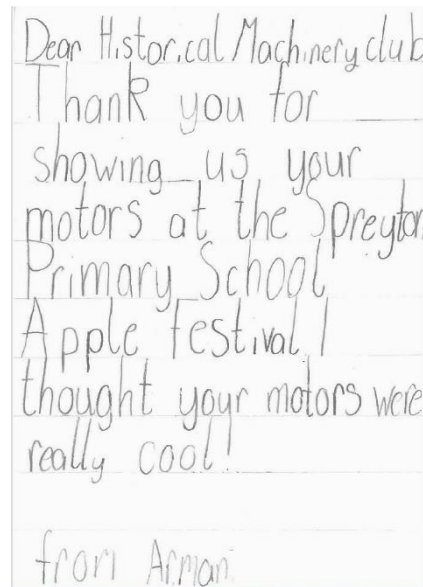 Dear Historical Machinery club
Thank you for
showing us your
motors at the Spreyton
Primary School
Apple festival I
thought your motors were
really cool!
from Arman